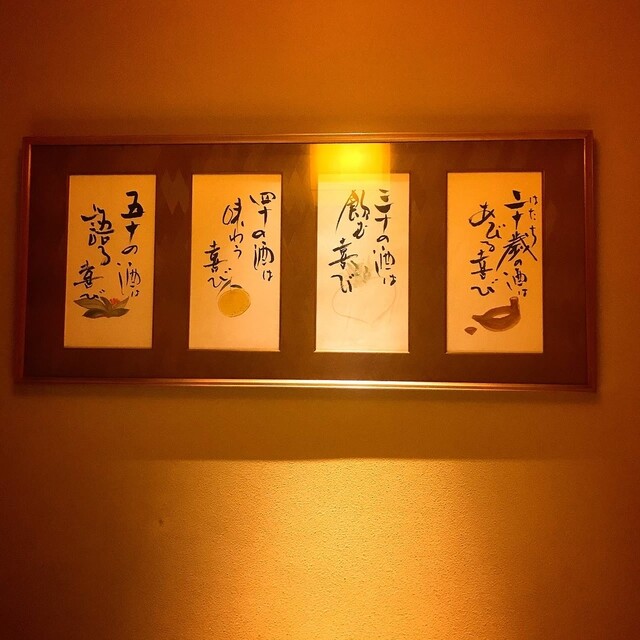 はたち
二十歳の酒は
あびる喜び
三十の酒は
飲む喜び
四十の酒は
味わう
喜び
五十の酒は
語る喜び